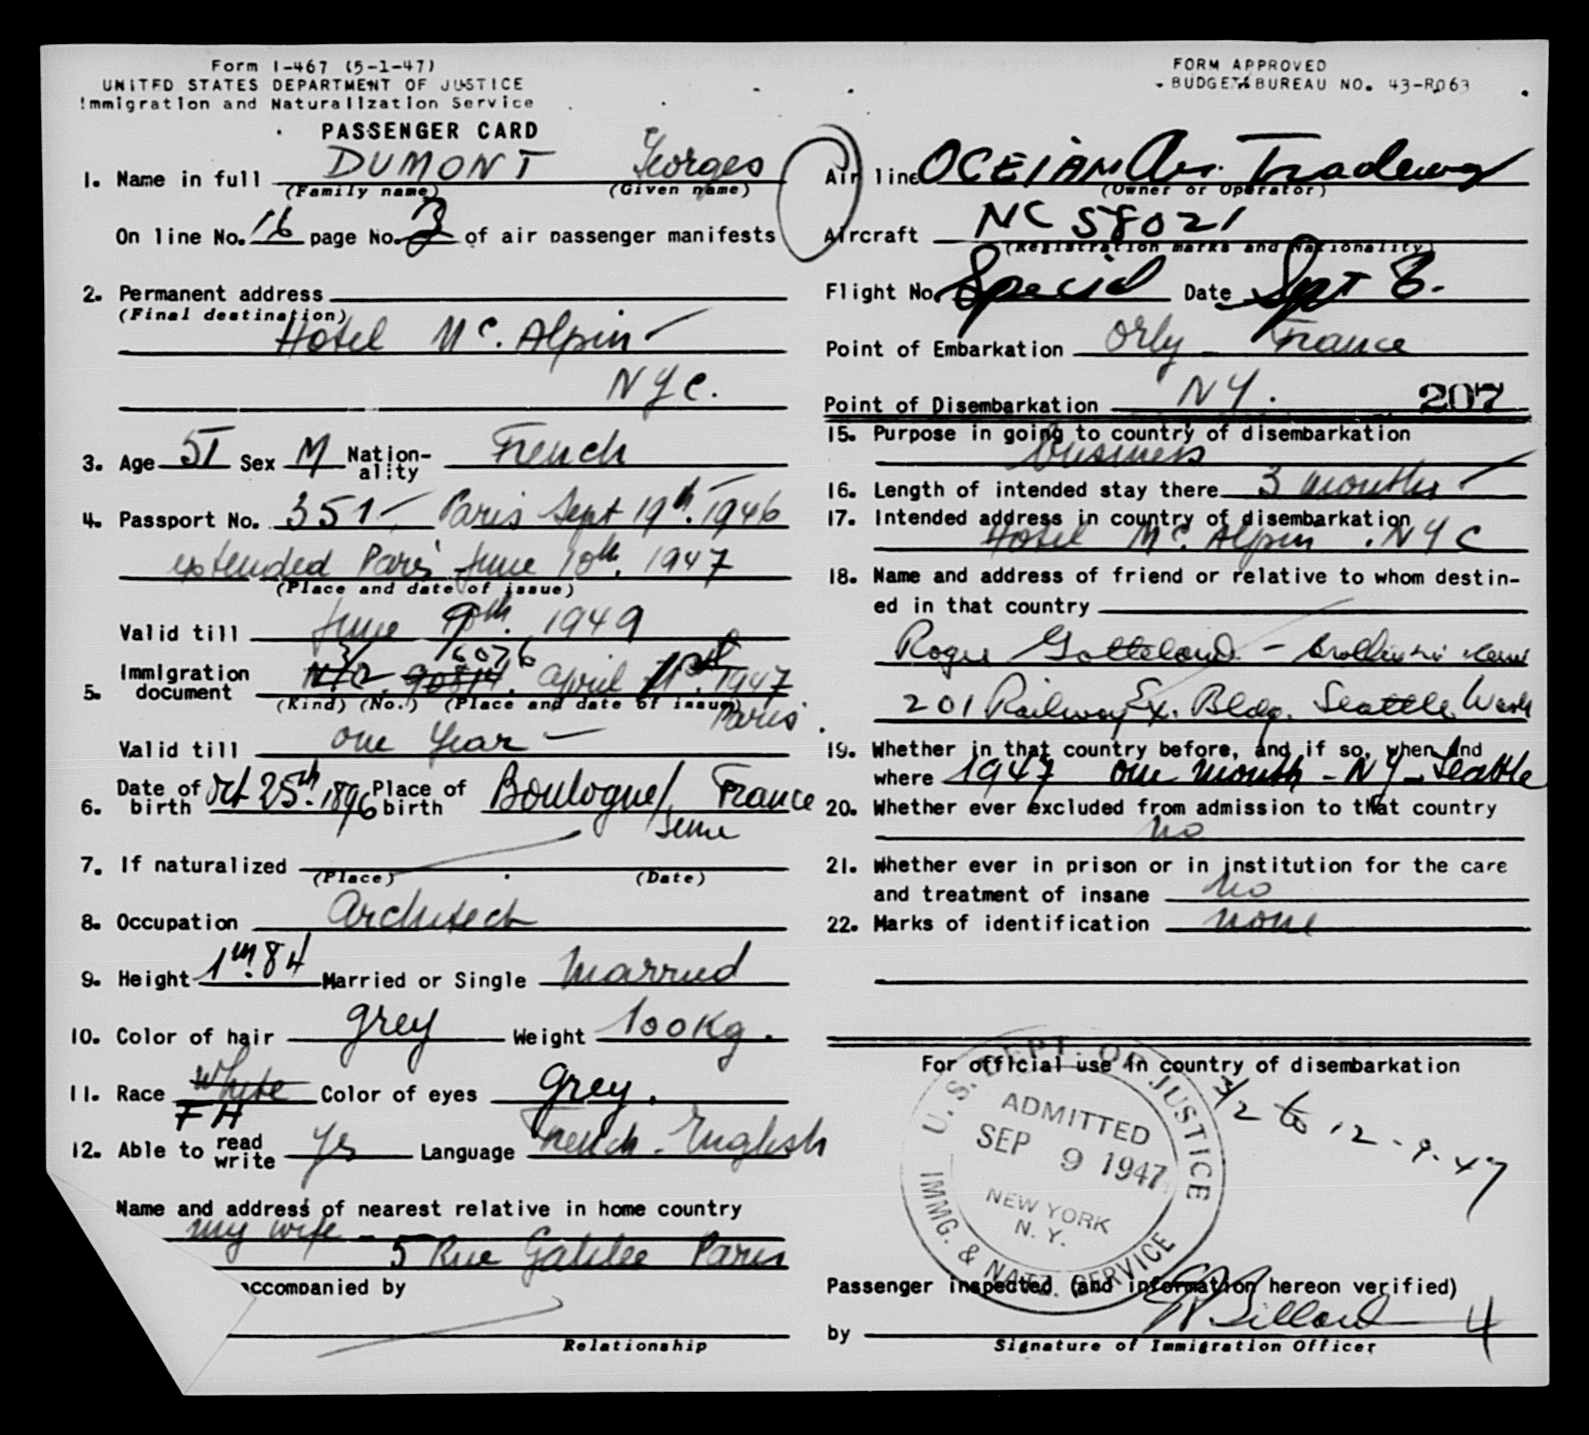 Form I-467 (5-1-47)
UNITED STATES DEPARTMENT OF JUSTICE
Immigration and Naturalization Service
PASSENGER CARD
FORM APPROVED
BUDGET BUREAU NO. 43-R063
1. Name in full DUMONT Georges
(Family name) (Given name)
On line No. 16 page No. 3 of air passenger manifests
2. Permanent address
(Final destination)
Hotel Mc. Alpin
NYC.
3. Age 51 Sex M Nation-ality French
4. Passport No. 351 Paris Sept 19th. 1946
extended Paris June 10th. 1947
(Place and date of issue)
Valid till June 10th. 1949
16076
5. Immigration document April 1947
(Kind) (No.) (Place and date of issue)
Paris
Valid till one Year
6. Date of birth Oct 25th. 1896 Place of birth Boulogne/ France
Seine
7. If naturalized
(Place) (Date)
8. Occupation Architect
9. Height 1m.84 Married or Single Married
10. Color of hair grey Weight 100Kg.
11. Race White Color of eyes grey.
FH
12. Able to read write Yes Language French - English
Name and address of nearest relative in home country
my wife -
5 Rue Galilee Paris
accompanied by
Relationship
Air line OCEIAN Air Tradeway
(Owner or Operator)
Aircraft NC 58021
(Registration marks and Nationality)
Flight No. Special Date Sept 8.
Point of Embarkation Orly - France
Point of Disembarkation NY. 207
15. Purpose in going to country of disembarkation
business
16. Length of intended stay there 3 months
17. Intended address in country of disembarkation
Hotel Mc. Alpin . NYC
18. Name and address of friend or relative to whom destin-
ed in that country
Roger Gotteland -
201 Railway Ex. Bldg. Seattle Wash
19. Whether in that country before, and if so, when and
where 1947 one month - NY - Seattle
20. Whether ever excluded from admission to that country
no
21. Whether ever in prison or in institution for the care
and treatment of insane no
22. Marks of identification none
For official use in country of disembarkation
U. S. DEPT. OF JUSTICE
ADMITTED
SEP 9 1947
NEW YORK
N. Y.
IMMG. & NATZ. SERVICE
3/2 to 12-9-47
Passenger inspected (and information hereon verified)
by 4
Signature of Immigration Officer